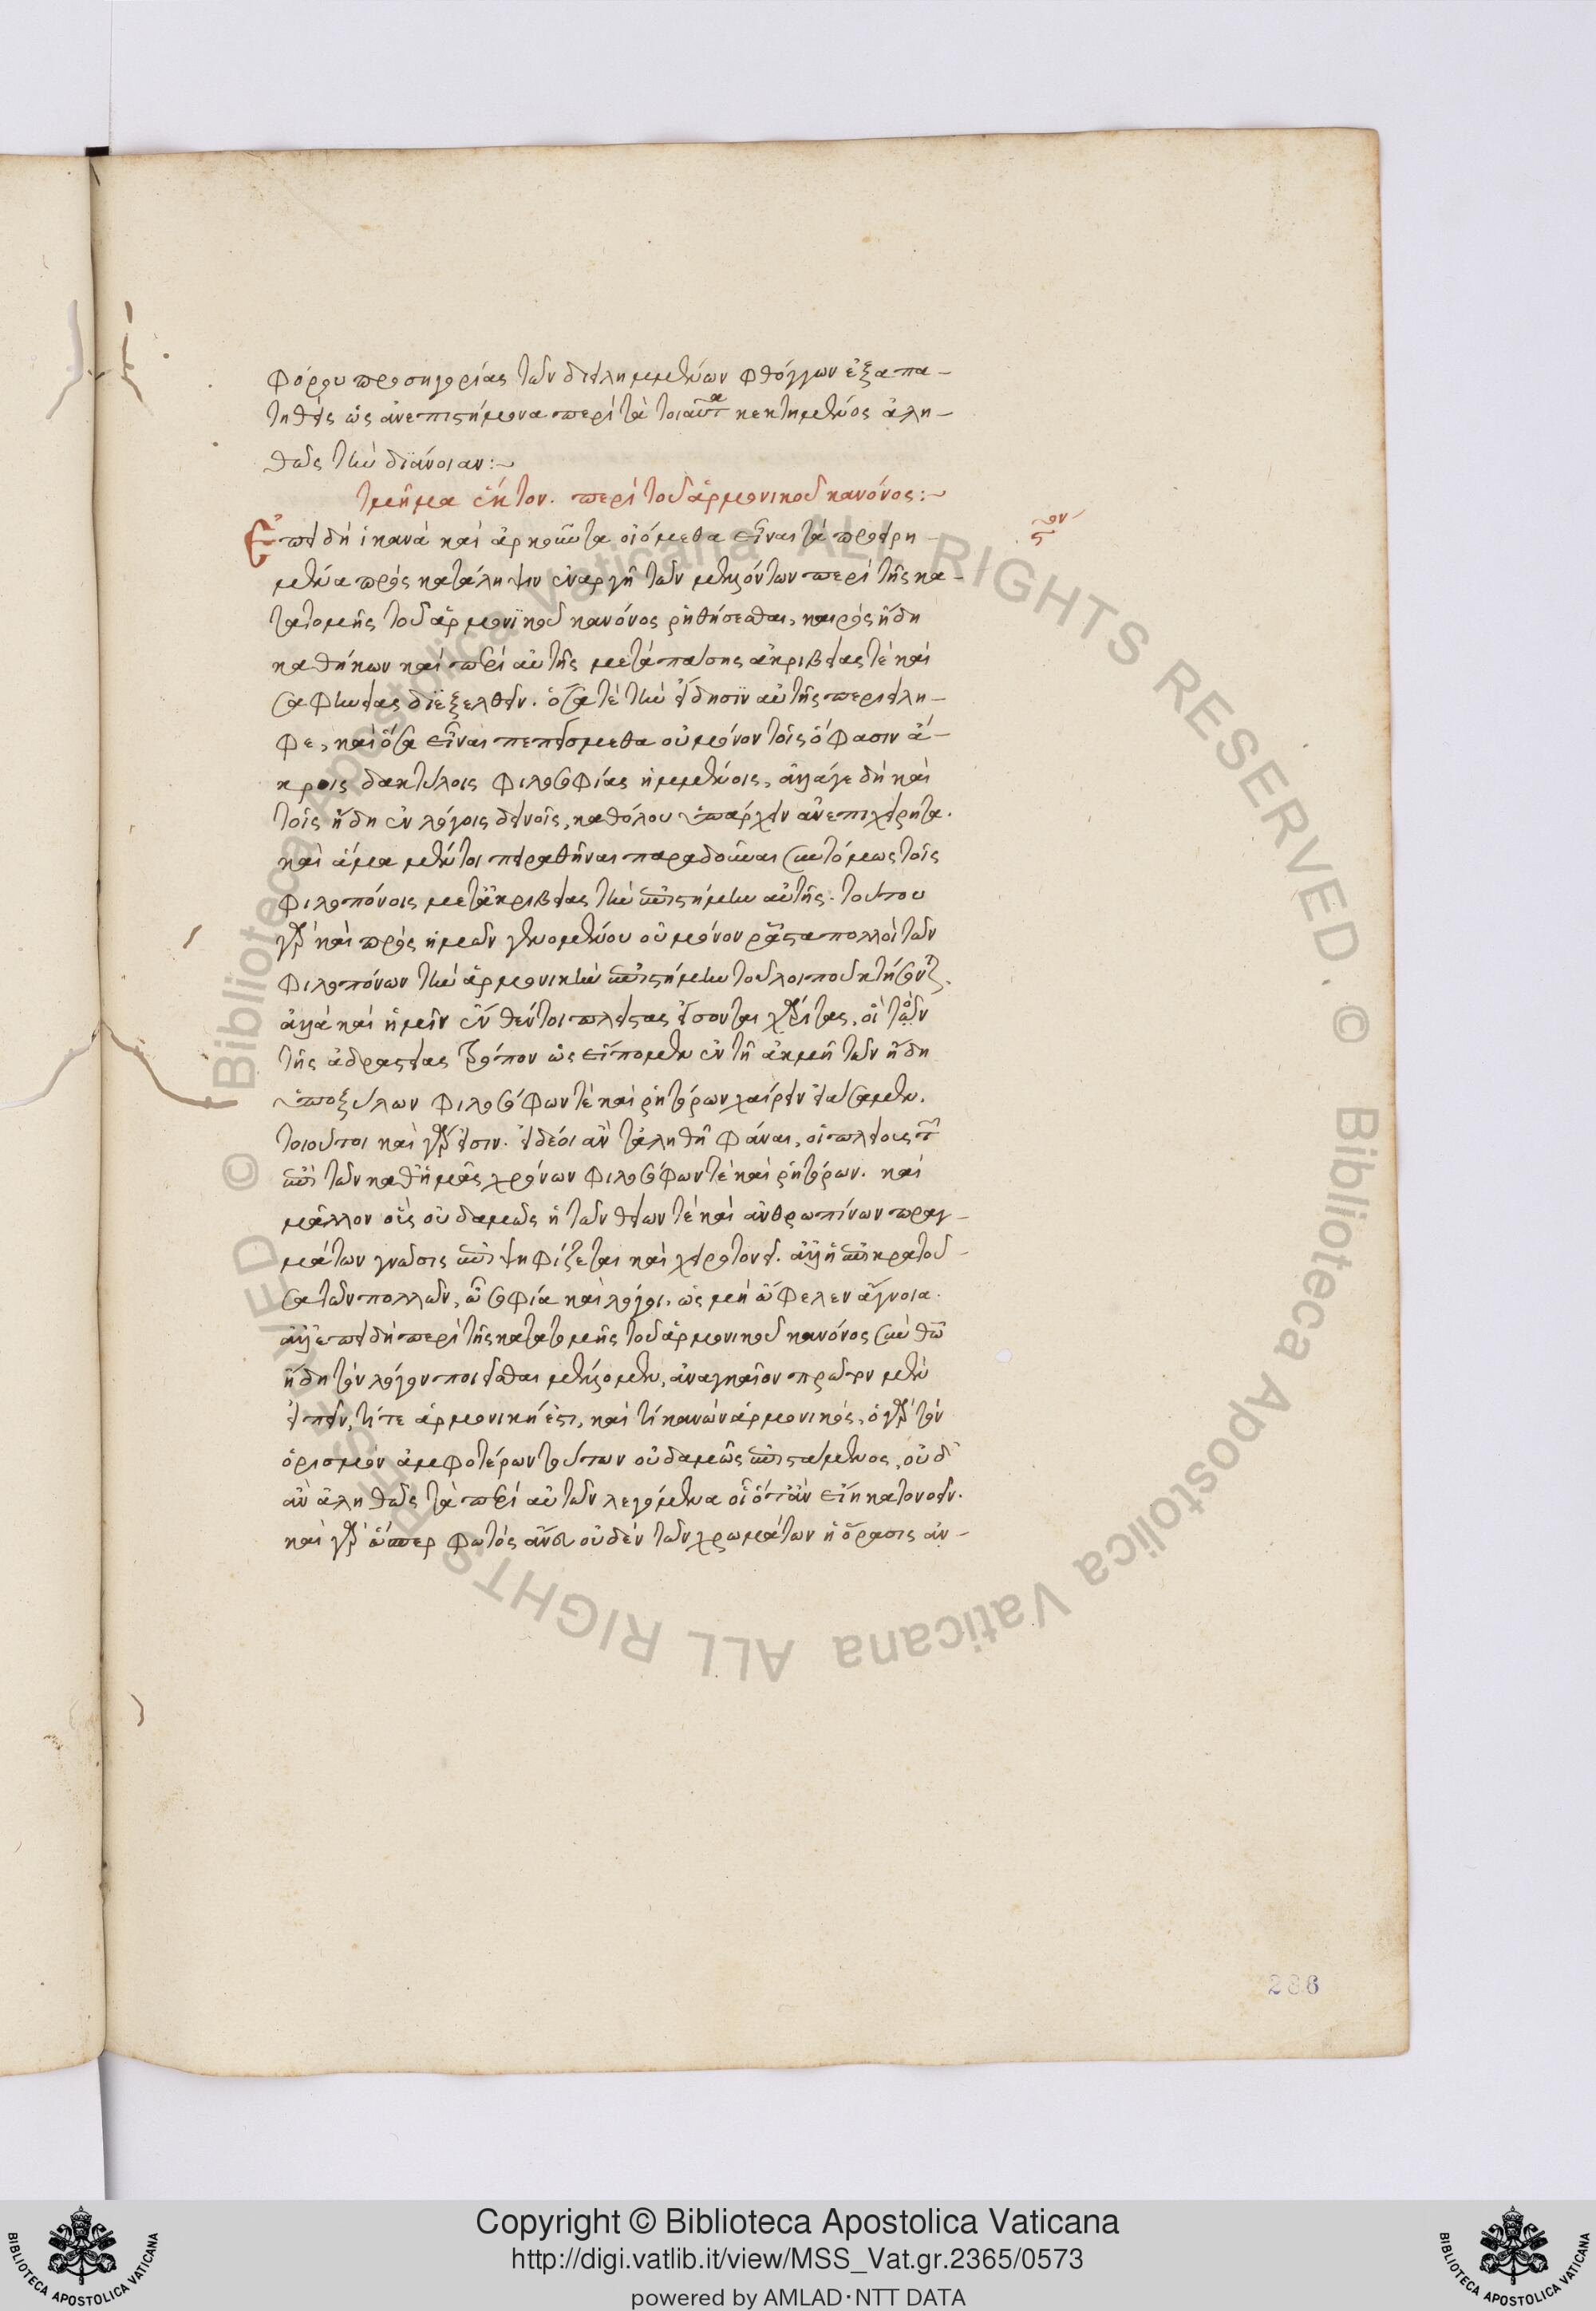 φόρου προσηγορίας τῶν διειλημμένων φθόγγων ἐξαπα-
τηθεὶς ὡς ἀνεπιστήμονα περὶ τὰ τοιαῦτα κεκτημένος ἀλη-
θῶς τὴν διάνοιαν:~
τμῆμα ἕκτον. περὶ τοῦ ἁρμονικοῦ κανόνος:~
ςον
Ἐπειδὴ ἱκανὰ καὶ ἀρκοῦντα οἰόμεθα εἶναι τὰ προειρη-
μένα πρὸς κατάληψιν ἐναργῆ τῶν μελλόντων περὶ τῆς κα-
τατομῆς τοῦ ἁρμονικοῦ κανόνος ῥηθήσεσθαι, καιρὸς ἤδη
καθήκων καὶ περὶ αὐτῆς μετὰ πάσης ἀκριβείας τὲ καὶ
σαφηνείας διεξελθεῖν. ὅσα τὲ τὴν εἴδησιν αὐτῆς περιείλη-
φε, καὶ ὅσα εἶναι πεπείσμεθα οὐ μόνον τοῖς ὅφασιν ἄ-
κροις δακτύλοις φιλοσοφίας ἡμμένοις, ἀλλάγε δὴ καὶ
τοῖς ἤδη ἐν λόγοις δεινοῖς, καθόλου ὑπάρχειν ἀνεπιχείρητα.
καὶ ἅμα μέντοι πειραθῆναι παραδοῦναι συντόμως τοῖς
φιλοπόνοις μετ' ἀκριβείας τὴν ἐπιστήμην αὐτῆς. τούτου
γὰρ καὶ πρὸς ἡμῶν γενομένου οὐ μόνον ῥᾷστα πολλοὶ τῶν
φιλοπόνων τὴν ἁρμονικὴν ἐπιστήμην τοῦ λοιποῦ κτήσονται.
ἀλλὰ καὶ ἡμῖν ἐνθέντοι πλείστας εἴσονται χάριτας, οἳ τὸν
τῆς ἀδραστείας τρόπον ὡς εἴπομεν ἐν τῇ ἀκμῇ τῶν ἤδη
ὑποξύλων φιλοσόφων τὲ καὶ ῥητόρων χαίρειν εἰάσαμεν.
τοιοῦτοι καὶ γάρ εἰσιν. εἰ δέοι ἂν τἀληθῆ φάναι, οἱ πλείους τῶν
ἐπὶ τῶν καθ' ἡμᾶς χρόνων φιλοσόφων τὲ καὶ ῥητόρων. καὶ
μᾶλλον οἷς οὐδαμῶς ἡ τῶν θείων τὲ καὶ ἀνθρωπίνων πραγ-
μάτων γνῶσις ἐπιψηφίζεται καὶ χειροτονεῖ. ἀλλ' ἡ ἐπικρατοῦ-
σα τῶν πολλῶν, ὦ σοφία καὶ λόγοι, ὡς μὴ ὤφελεν ἄγνοια.
ἀλλ' ἐπειδὴ περὶ τῆς κατατομῆς τοῦ ἁρμονικοῦ κανόνος σὺν θεῷ
ἤδη τὸν λόγον ποιεῖσθαι μέλλομεν, ἀναγκαῖον πρῶτον μὲν
εἰπεῖν, τί τε ἁρμονική ἐστι, καὶ τί κανὼν ἁρμονικός. ὁ γὰρ τὸν
ὁρισμὸν ἀμφοτέρων τούτων οὐδαμῶς ἐπιστάμενος, οὐδ'
ἂν ἀληθῶς τὰ περὶ αὐτῶν λεγόμενα οἷός τ' ἂν εἴη κατονοεῖν.
καὶ γὰρ ὥσπερ φωτὸς ἄνευ οὐδὲν τῶν χρωμάτων ἡ ὅρασις ἀν-
286
Copyright © Biblioteca Apostolica Vaticana
http://digi.vatlib.it/view/MSS_Vat.gr.2365/0573
powered by AMLAD·NTT DATA
BIBLIOTECA APOSTOLICA VATICANA
BIBLIOTECA APOSTOLICA VATICANA